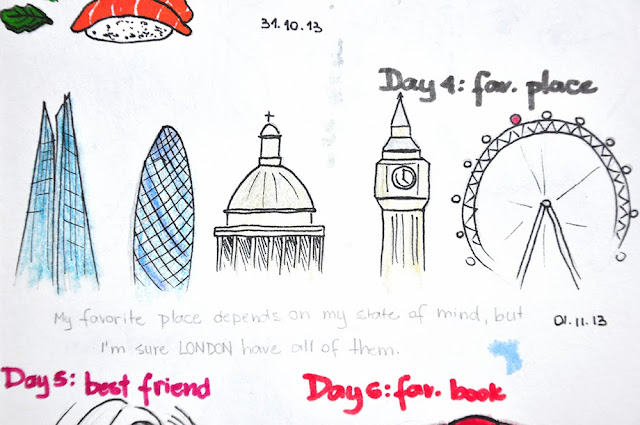 31.10.13
Day 4: fav. place
My favorite place depends on my state of mind, but
01.11.13
I'm sure LONDON have all of them.
Day 5: best friend
Day 6: fav. book